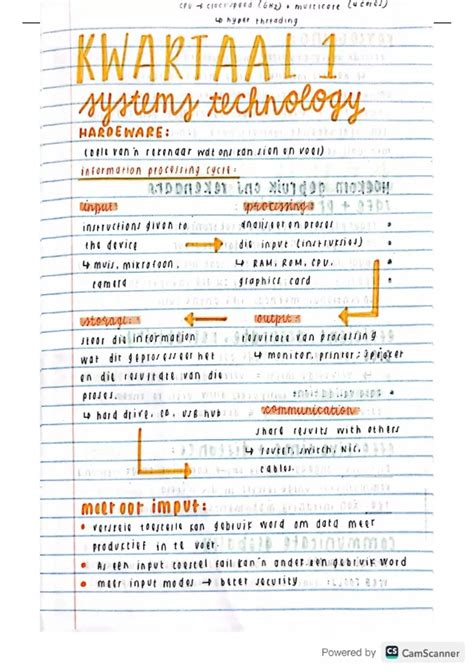 CPU → clockspeed (GHz) + multicore (4 cores)
↳ hyper threading
KWARTAAL 1
systems technology
HARDEWARE:
(dele van'n rekenaar wat ons kan sien en voel)
information processing cycle:
input
instructions given to
the device
↳ muis, mikrofoon,
camera
processing:
analiseer en proses
die input (instruksies)
↳ RAM, ROM, CPU,
graphics card
storage:
stoor die information
wat dit geprosesseer het
en die resultate van die
proses.
↳ hard drive, CD, USB hub
output
resultate van processing
↳ monitor, printer, speaker
communication
share results with others
↳ router, switch, NIC,
cables.
meer oor imput:
• verskeie toestelle kan gebruik word om data meer
productief in te voer.
• As een input toestel fail kan'n ander een gebruik word
• meer input modes → beter security
Powered by CS CamScanner